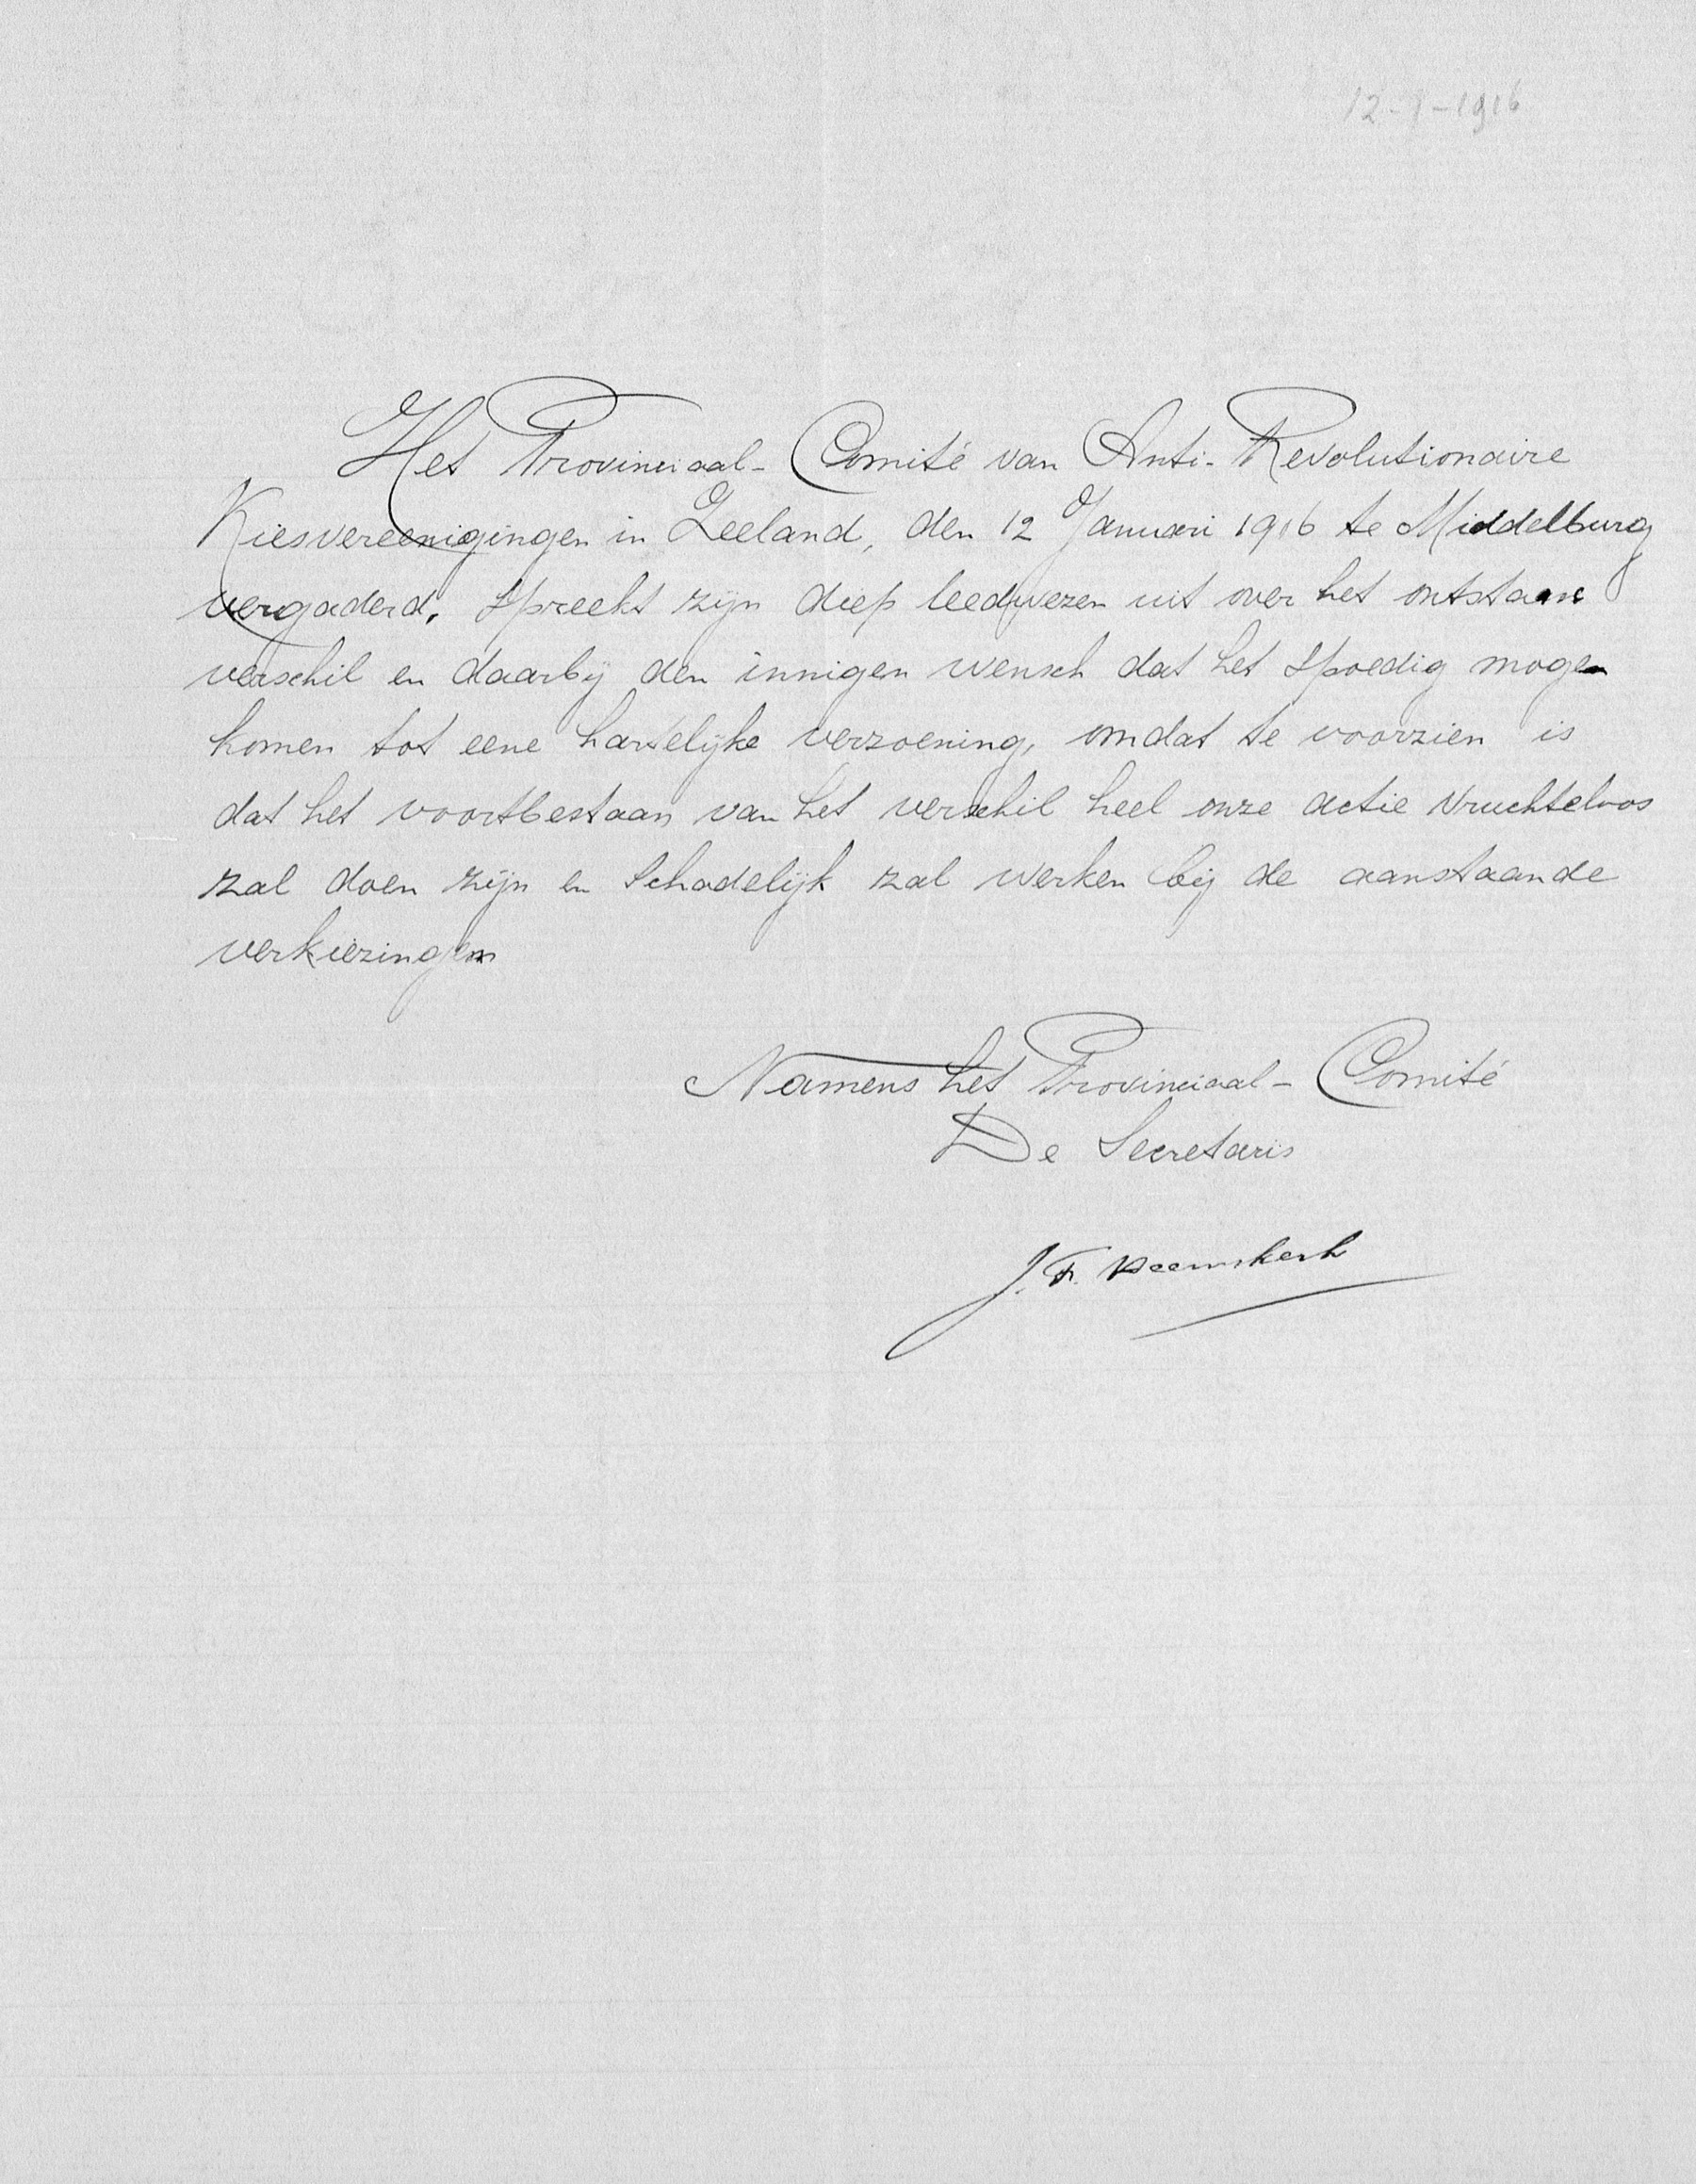 12-1-1916
Het Provinciaal-Comité van Anti-Revolutionaire
Kiesvereenigingen in Zeeland, den 12 Januari 1916 te Middelburg
vergaderd, spreekt zijn diep leedwezen uit over het ontstane
verschil en daarbij den innigen wensch dat het spoedig moge
komen tot eene hartelijke verzoening, omdat te voorzien is
dat het voortbestaan van het verschil heel onze actie vruchteloos
zal doen zijn en schadelijk zal werken bij de aanstaande
verkiezingen
Namens het Provinciaal-Comité
De Secretaris
J. F. Heemskerk